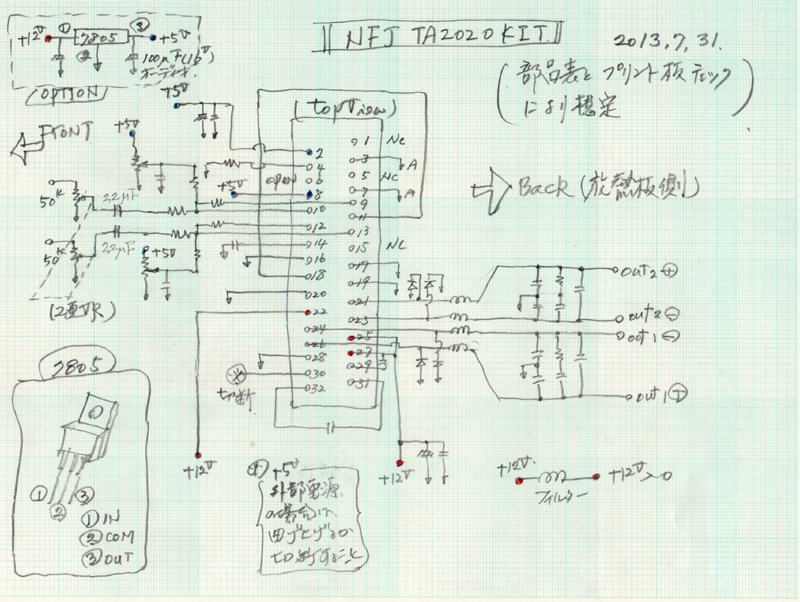 NFJ TA2020 KIT
2013,7,31.
(部品表とプリント板チェック
により想定)
+12V ① 7805 ③ +5V
②
100μF(16V)
オーディオ
(OPTION)
FRONT
+5V
+5V
(topView)
1 NC
2
3 A
4
5 NC
6
7 A
8
9
10
11
12
13
14
15 NC
16
17
18
19
20
21
22
23
24
25
26
27
28
29
30
31
32
open
+5V
50K
2.2μF
50K
2.2μF
+5V
(2連VR)
Back (放熱板側)
out2 ⊕
out2 ⊖
out1 ⊖
out1 ⊕
切断
+12V
+12V
7805
①
②
③
① IN
② COM
③ OUT
+5V
外部電源
の場合は
切断すること
+12V
フィルター
+12V